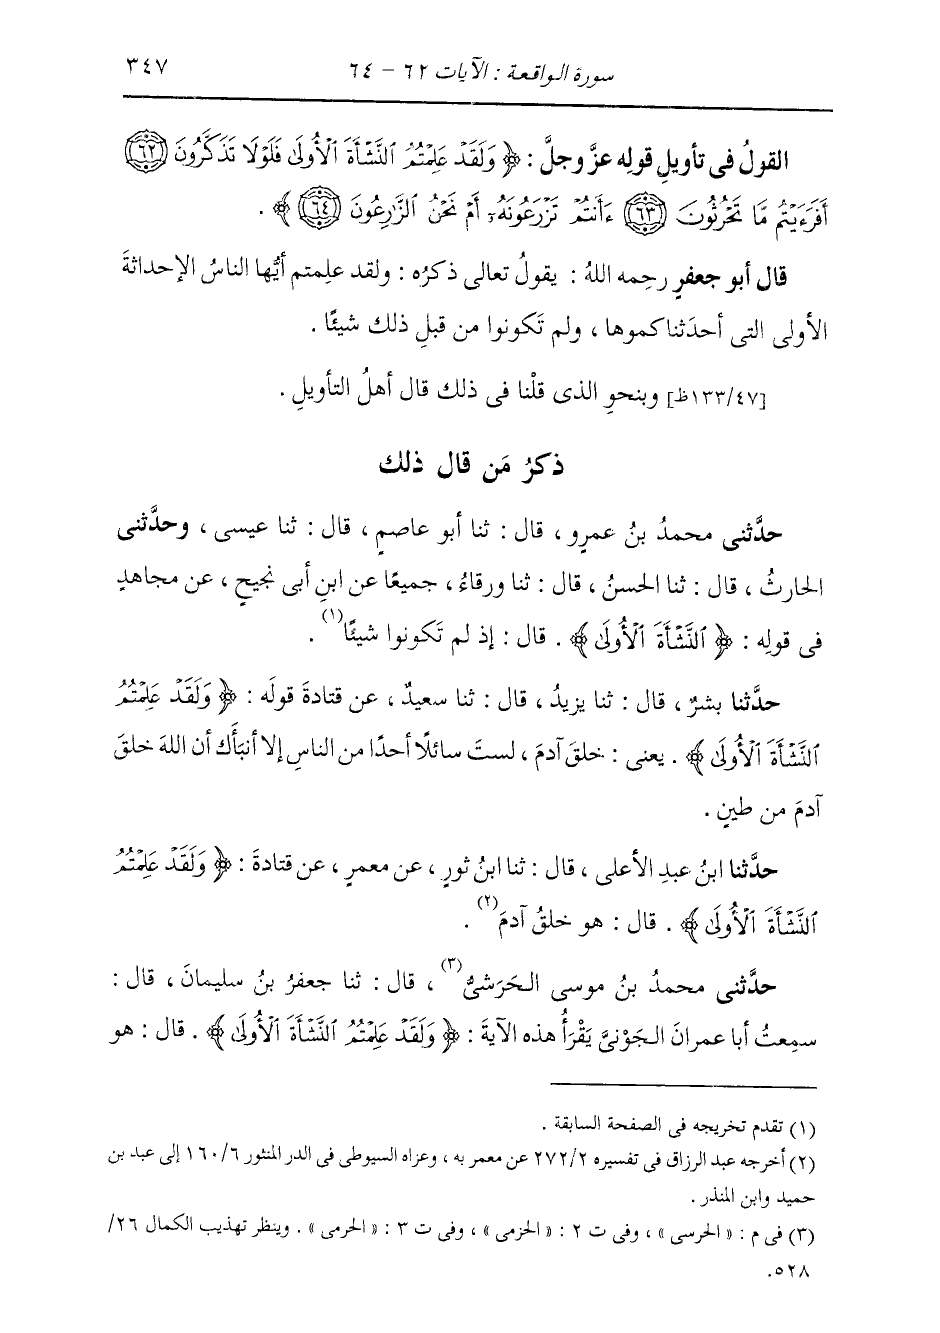 سورة الواقعة : الآيات ٦٢ - ٦٤ ٣٤٧
القولُ فى تأويلِ قولِه عزَّ وجلَّ : ﴿ وَلَقَدْ عَلِمْتُمُ ٱلنَّشْأَةَ ٱلْأُولَىٰ فَلَوْلَا تَذَكَّرُونَ ٦٢
أَفَرَءَيْتُم مَّا تَحْرُثُونَ ٦٣ ءَأَنتُمْ تَزْرَعُونَهُۥٓ أَمْ نَحْنُ ٱلزَّٰرِعُونَ ٦٤ ﴾ .
قال أبو جعفرٍ رحِمه اللهُ : يقولُ تعالى ذكرُه : ولقد علِمتم أيُّها الناسُ الإحداثةَ
الأولى التى أحدَثناكموها ، ولم تَكونوا من قبلِ ذلك شيئًا .
[١٣٣/٤٧ظ] وبنحوِ الذى قلْنا فى ذلك قال أهلُ التأويلِ .
ذكرُ مَن قال ذلك
حدَّثنى محمدُ بنُ عمرٍو ، قال : ثنا أبو عاصمٍ ، قال : ثنا عيسى ، وحدَّثنى
الحارثُ ، قال : ثنا الحسنُ ، قال : ثنا ورقاءُ ، جميعًا عن ابنِ أبى نجيحٍ ، عن مجاهدٍ
فى قولِه : ﴿ ٱلنَّشْأَةَ ٱلْأُولَىٰ ﴾ . قال : إذ لم تَكونوا شيئًا(١) .
حدَّثنا بشرٌ ، قال : ثنا يزيدُ ، قال : ثنا سعيدٌ ، عن قتادةَ قولَه : ﴿ وَلَقَدْ عَلِمْتُمُ
ٱلنَّشْأَةَ ٱلْأُولَىٰ ﴾ . يعنى : خلقَ آدمَ ، لستَ سائلًا أحدًا من الناسِ إلا أنبَأَك أن اللهَ خلقَ
آدمَ من طينٍ .
حدَّثنا ابنُ عبدِ الأعلى ، قال : ثنا ابنُ ثورٍ ، عن معمرٍ ، عن قتادةَ : ﴿ وَلَقَدْ عَلِمْتُمُ
ٱلنَّشْأَةَ ٱلْأُولَىٰ ﴾ . قال : هو خلقُ آدمَ(٢) .
حدَّثنى محمدُ بنُ موسى الحَرَشىُّ(٣) ، قال : ثنا جعفرُ بنُ سليمانَ ، قال :
سمِعتُ أبا عمرانَ الجَوْنىَّ يَقْرَأُ هذه الآيةَ : ﴿ وَلَقَدْ عَلِمْتُمُ ٱلنَّشْأَةَ ٱلْأُولَىٰ ﴾ . قال : هو
(١) تقدم تخريجه فى الصفحة السابقة .
(٢) أخرجه عبد الرزاق فى تفسيره ٢٧٢/٢ عن معمر به ، وعزاه السيوطى فى الدر المنثور ١٦٠/٦ إلى عبد بن
حميد وابن المنذر .
(٣) فى م : « الحرسى » ، وفى ت ٢ : « الخزمى » ، وفى ت ٣ : « الحرمى » . وينظر تهذيب الكمال ٢٦/
٥٢٨.